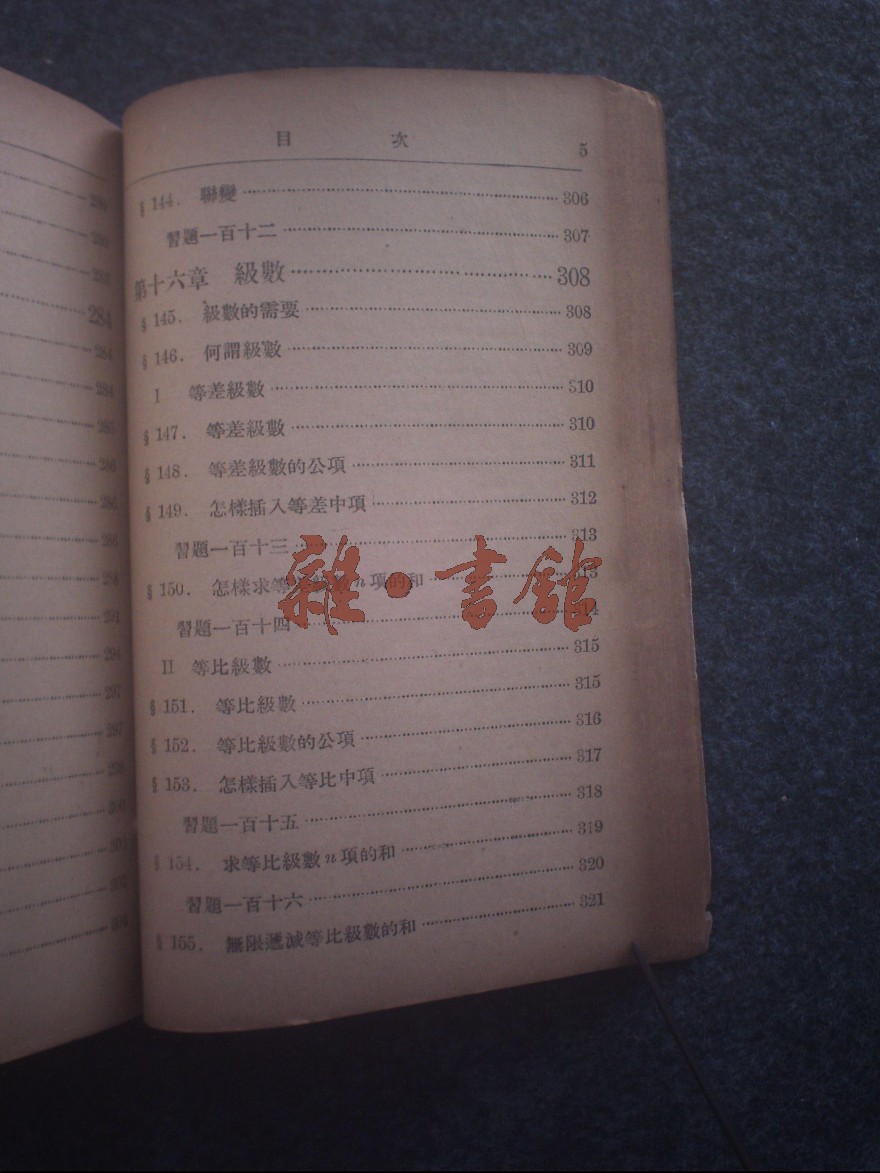 目 次 5
§ 144. 聯變 306
習題一百十二 307
第十六章 級數 308
§ 145. 級數的需要 308
§ 146. 何謂級數 309
I 等差級數 310
§ 147. 等差級數 310
§ 148. 等差級數的公項 311
§ 149. 怎樣插入等差中項 312
習題一百十三 313
§ 150. 怎樣求等差級數n項的和 313
習題一百十四
II 等比級數 315
§ 151. 等比級數 315
§ 152. 等比級數的公項 316
§ 153. 怎樣插入等比中項 317
習題一百十五 318
§ 154. 求等比級數n項的和 319
習題一百十六 320
§ 155. 無限遞減等比級數的和 321
雜·書館
284
284
284
285
286
286
286
288
291
294
297
297
298
300